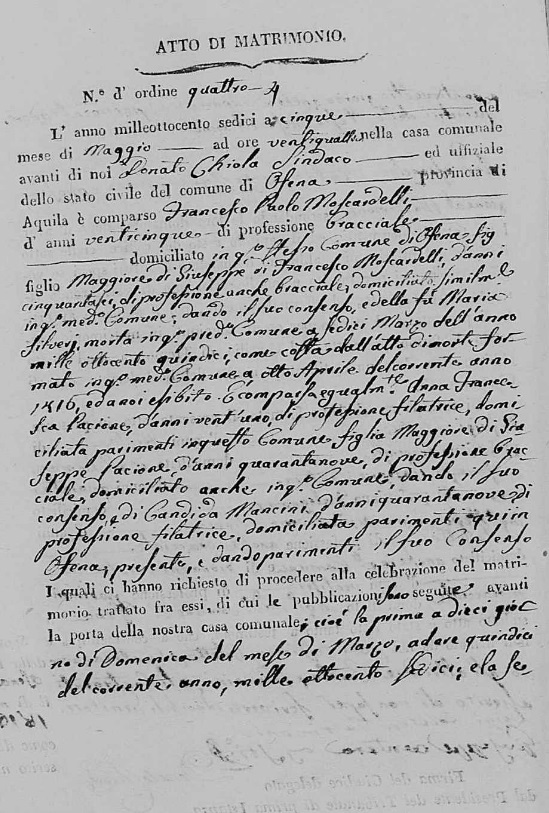 ATTO DI MATRIMONIO.
N.° d' ordine quattro - 4
L' anno milleottocento sedici a cinque del
mese di Maggio ad ore ventiquattro nella casa comunale
avanti di noi Donato Chiola Sindaco ed uffiziale
dello stato civile del comune di Ofena provincia di
Aquila è comparso Francesco Paolo Moscardelli,
d' anni venticinque di professione bracciale
domiciliato in q.° stesso Comune di Ofena fig
figlio Maggiore di Giuseppe di Francesco Moscardelli, d'anni
cinquantasei, di professione anche bracciale, domiciliato similm.e
in q.° med.° Comune; dando il suo consenso, e della fù Maria
Silveri, morta in q.° pred.° Comune a sedici Marzo dell'anno
mille ottocento quindici, come costa dall'atto di morte for
mato in q.° med.° Comune a otto Aprile del corrente anno
1816, ed a noi esibito. È comparsa egualm.te Anna France=
sca Iacione, d'anni vent'uno, di professione filatrice, domi
ciliata parimenti in questo Comune figlia Maggiore di Giu
seppe Iacione, d'anni quarantanove, di professione brac
ciale, domiciliato anche in q.° Comune, dando il suo
consenso, e di Candida Mancini, d'anni quarantanove, di
professione filatrice, domiciliata parimenti qui in
Ofena, presente, e dando parimenti il suo Consenso
I quali ci hanno richiesto di procedere alla celebrazione del matri-
monio trattato fra essi, di cui le pubblicazioni sono seguite avanti
la porta della nostra casa comunale, cioè la prima a dieci gior
no di Domenica del mese di Marzo, ad ore quindici
del corrente anno, mille ottocento sedici; e la se=